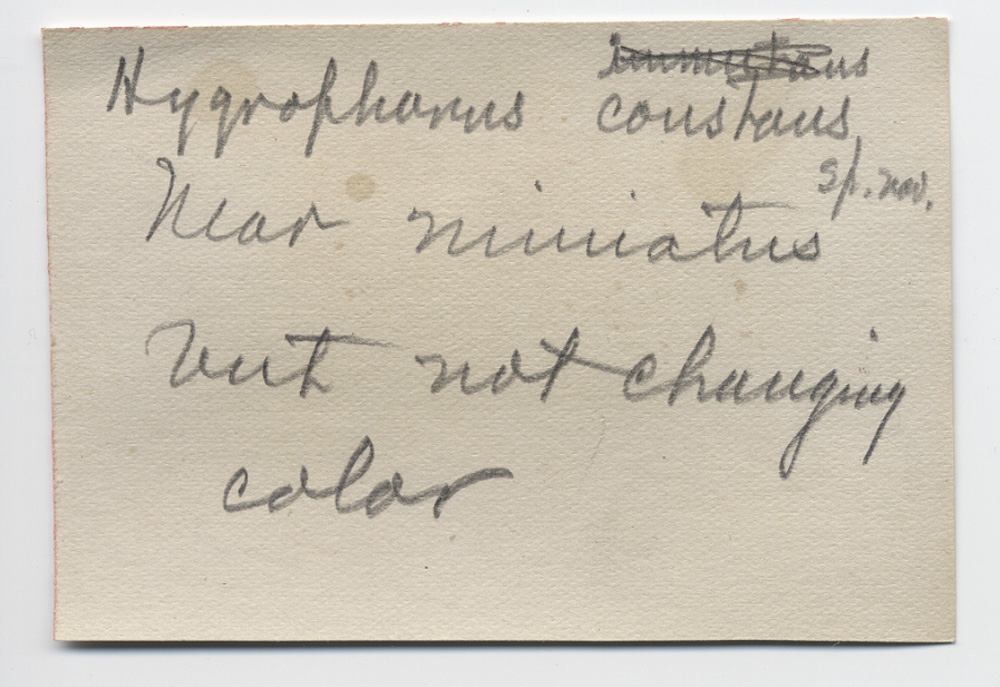 Hygrophorus constans
sp. nov.
Near miniatus
but not changing
color